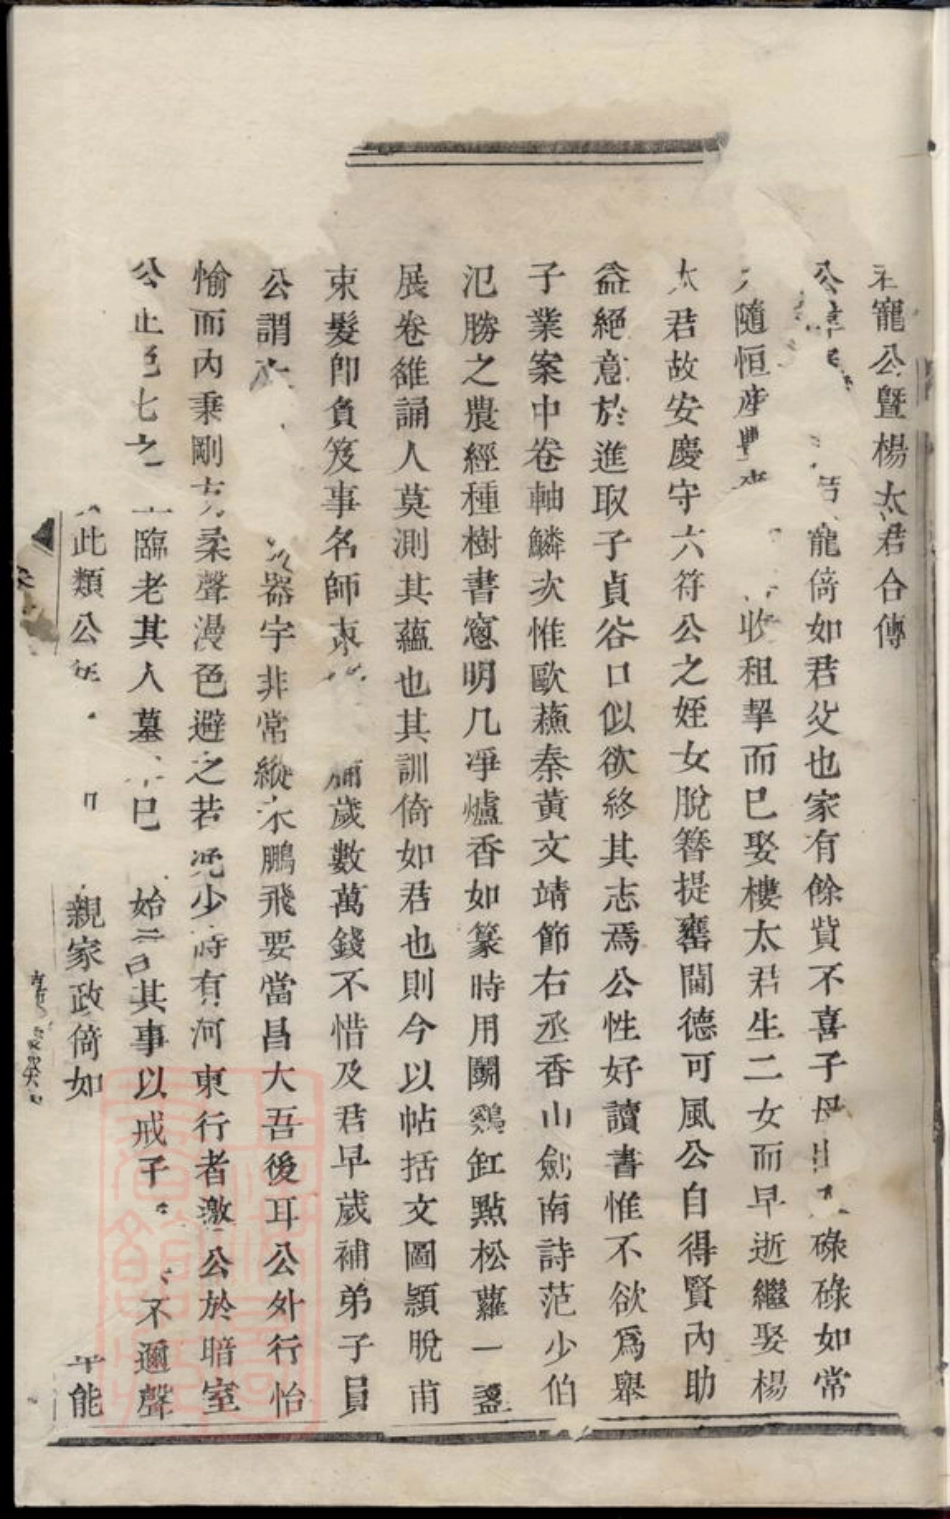 寵公暨楊太君合傳
公 寵倚如君父也家有餘貲不喜子母 碌碌如常
隨恒産 收租挈而已娶樓太君生二女而早逝繼娶楊
太君故安慶守六符公之姪女脫簪提甕閫德可風公自得賢內助
益絕意於進取子貞谷口似欲終其志焉公性好讀書惟不欲爲舉
子業案中卷軸鱗次惟歐蘇秦黃文靖節右丞香山劍南詩范少伯
氾勝之農經種樹書窻明几淨爐香如篆時用鬭鷄缸點松蘿一盞
展卷雒誦人莫測其蘊也其訓倚如君也則今以帖括文圖頴脫甫
束髮卽負笈事名師束 歲數萬錢不惜及君早歲補弟子員
公謂 器宇非常縱 鵬飛要當昌大吾後耳公外行怡
愉而內秉剛方柔聲漫色避之若 少時有河東行者激公於暗室
公止 七之 臨老其人墓 已 始 其事以戒子 不邇聲
此類公 親家政倚如 能